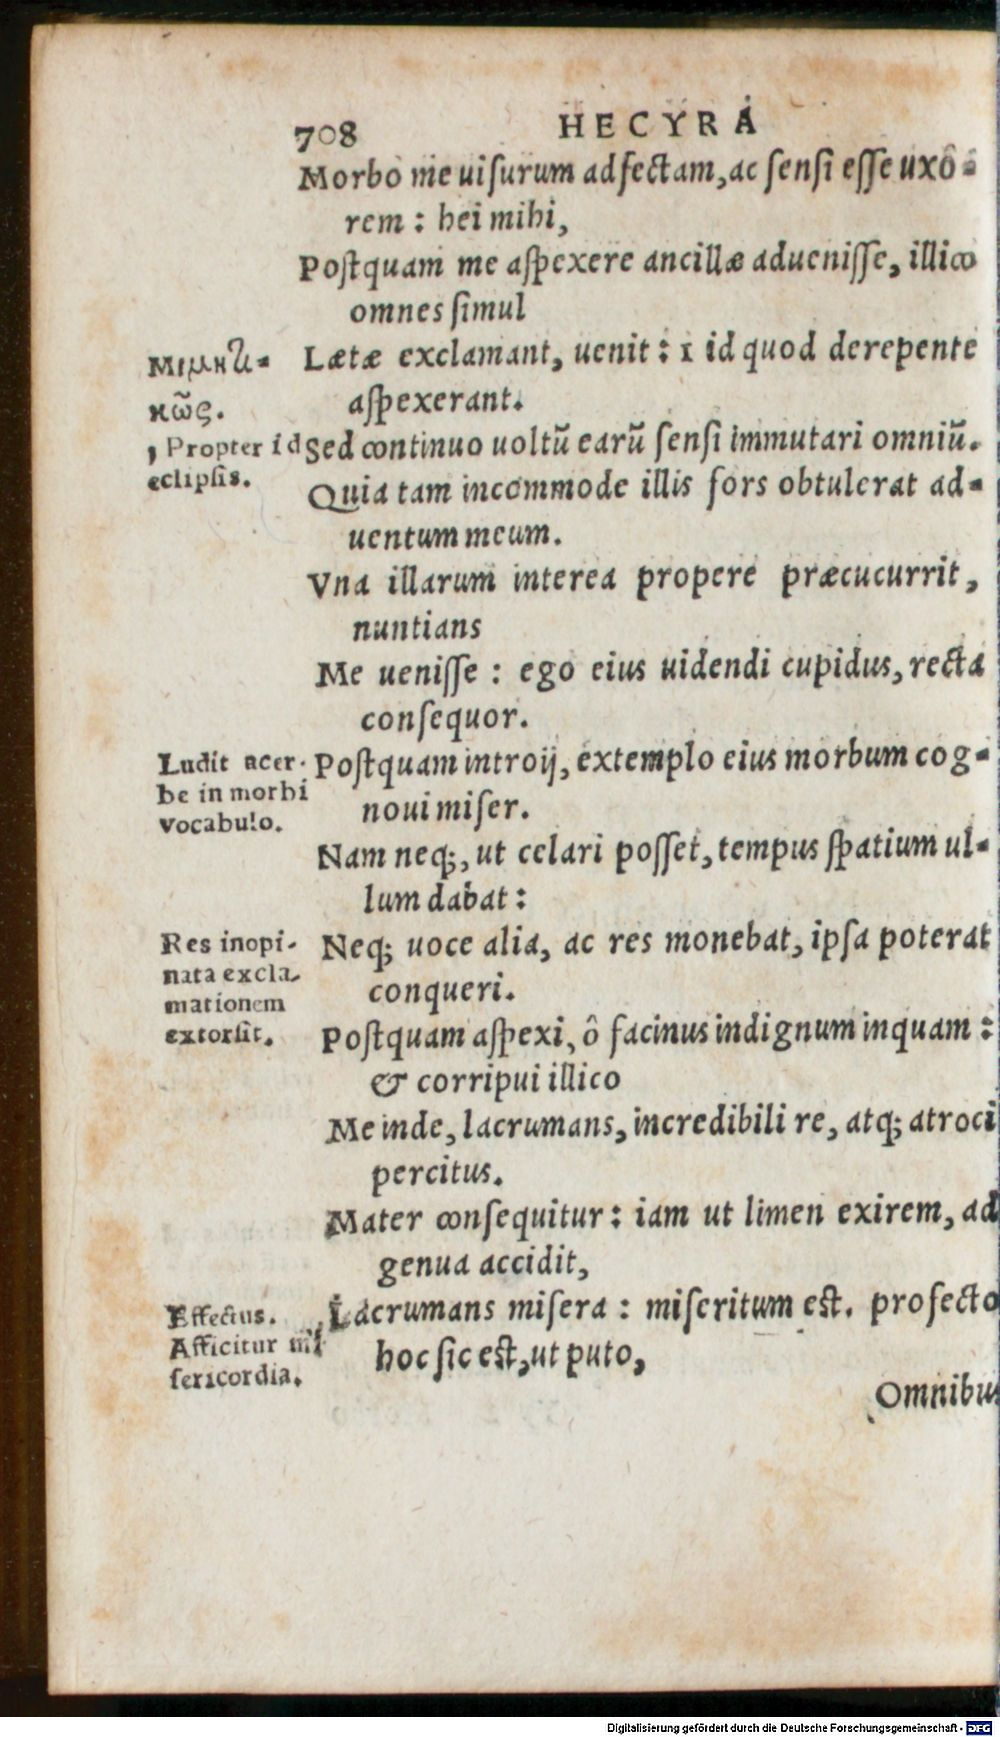 708 HECYRA
Morbo me uiſurum adfectam, ac ſenſi eſſe uxo-
rem : hei mihi,
Poſtquam me aſpexere ancillæ adueniſſe, illico
omnes ſimul
Μιμητι-
κῶς.
Lætæ exclamant, uenit : 1 id quod derepente
aſpexerant.
1 Propter id
eclipſis.
Sed continuo uoltū earū ſenſi immutari omniū.
Quia tam incommode illis fors obtulerat ad-
uentum meum.
Vna illarum interea propere præcucurrit,
nuntians
Me ueniſſe : ego eius uidendi cupidus, recta
conſequor.
Ludit acer-
be in morbi
vocabulo.
Poſtquam introij, extemplo eius morbum cog-
noui miſer.
Nam neq;, ut celari poſſet, tempus ſpatium ul-
lum dabat :
Res inopi-
nata excla-
mationem
extorſit.
Neq; uoce alia, ac res monebat, ipſa poterat
conqueri.
Poſtquam aſpexi, ô facinus indignum inquam :
& corripui illico
Me inde, lacrumans, incredibili re, atq; atroci
percitus.
Mater conſequitur : iam ut limen exirem, ad
genua accidit,
Effectus.
Afficitur mi
ſericordia.
Lacrumans miſera : miſeritum eſt. profecto
hoc ſic eſt, ut puto,
Omnibus
Digitalisierung gefördert durch die Deutsche Forschungsgemeinschaft - DFG